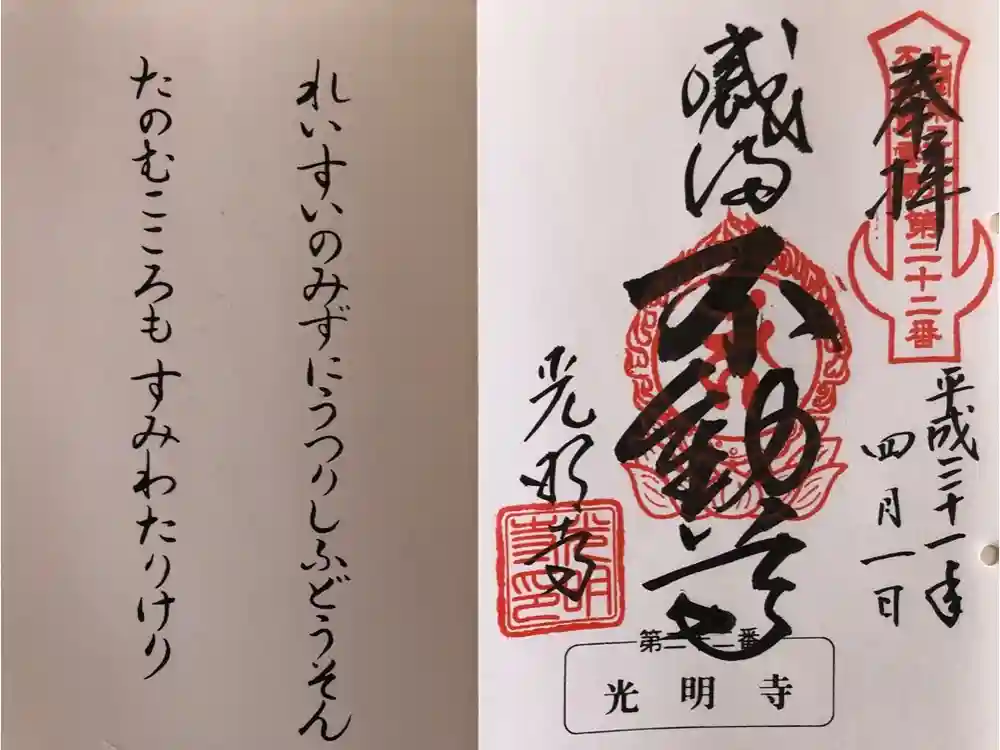 奉拝
第二十二番
平成三十一年
四月一日
厳満
不動尊
光明寺
光明寺印
第二十二番
光明寺
れいすいのみずにうつりしふどうそん
たのむこころもすみわたりけり